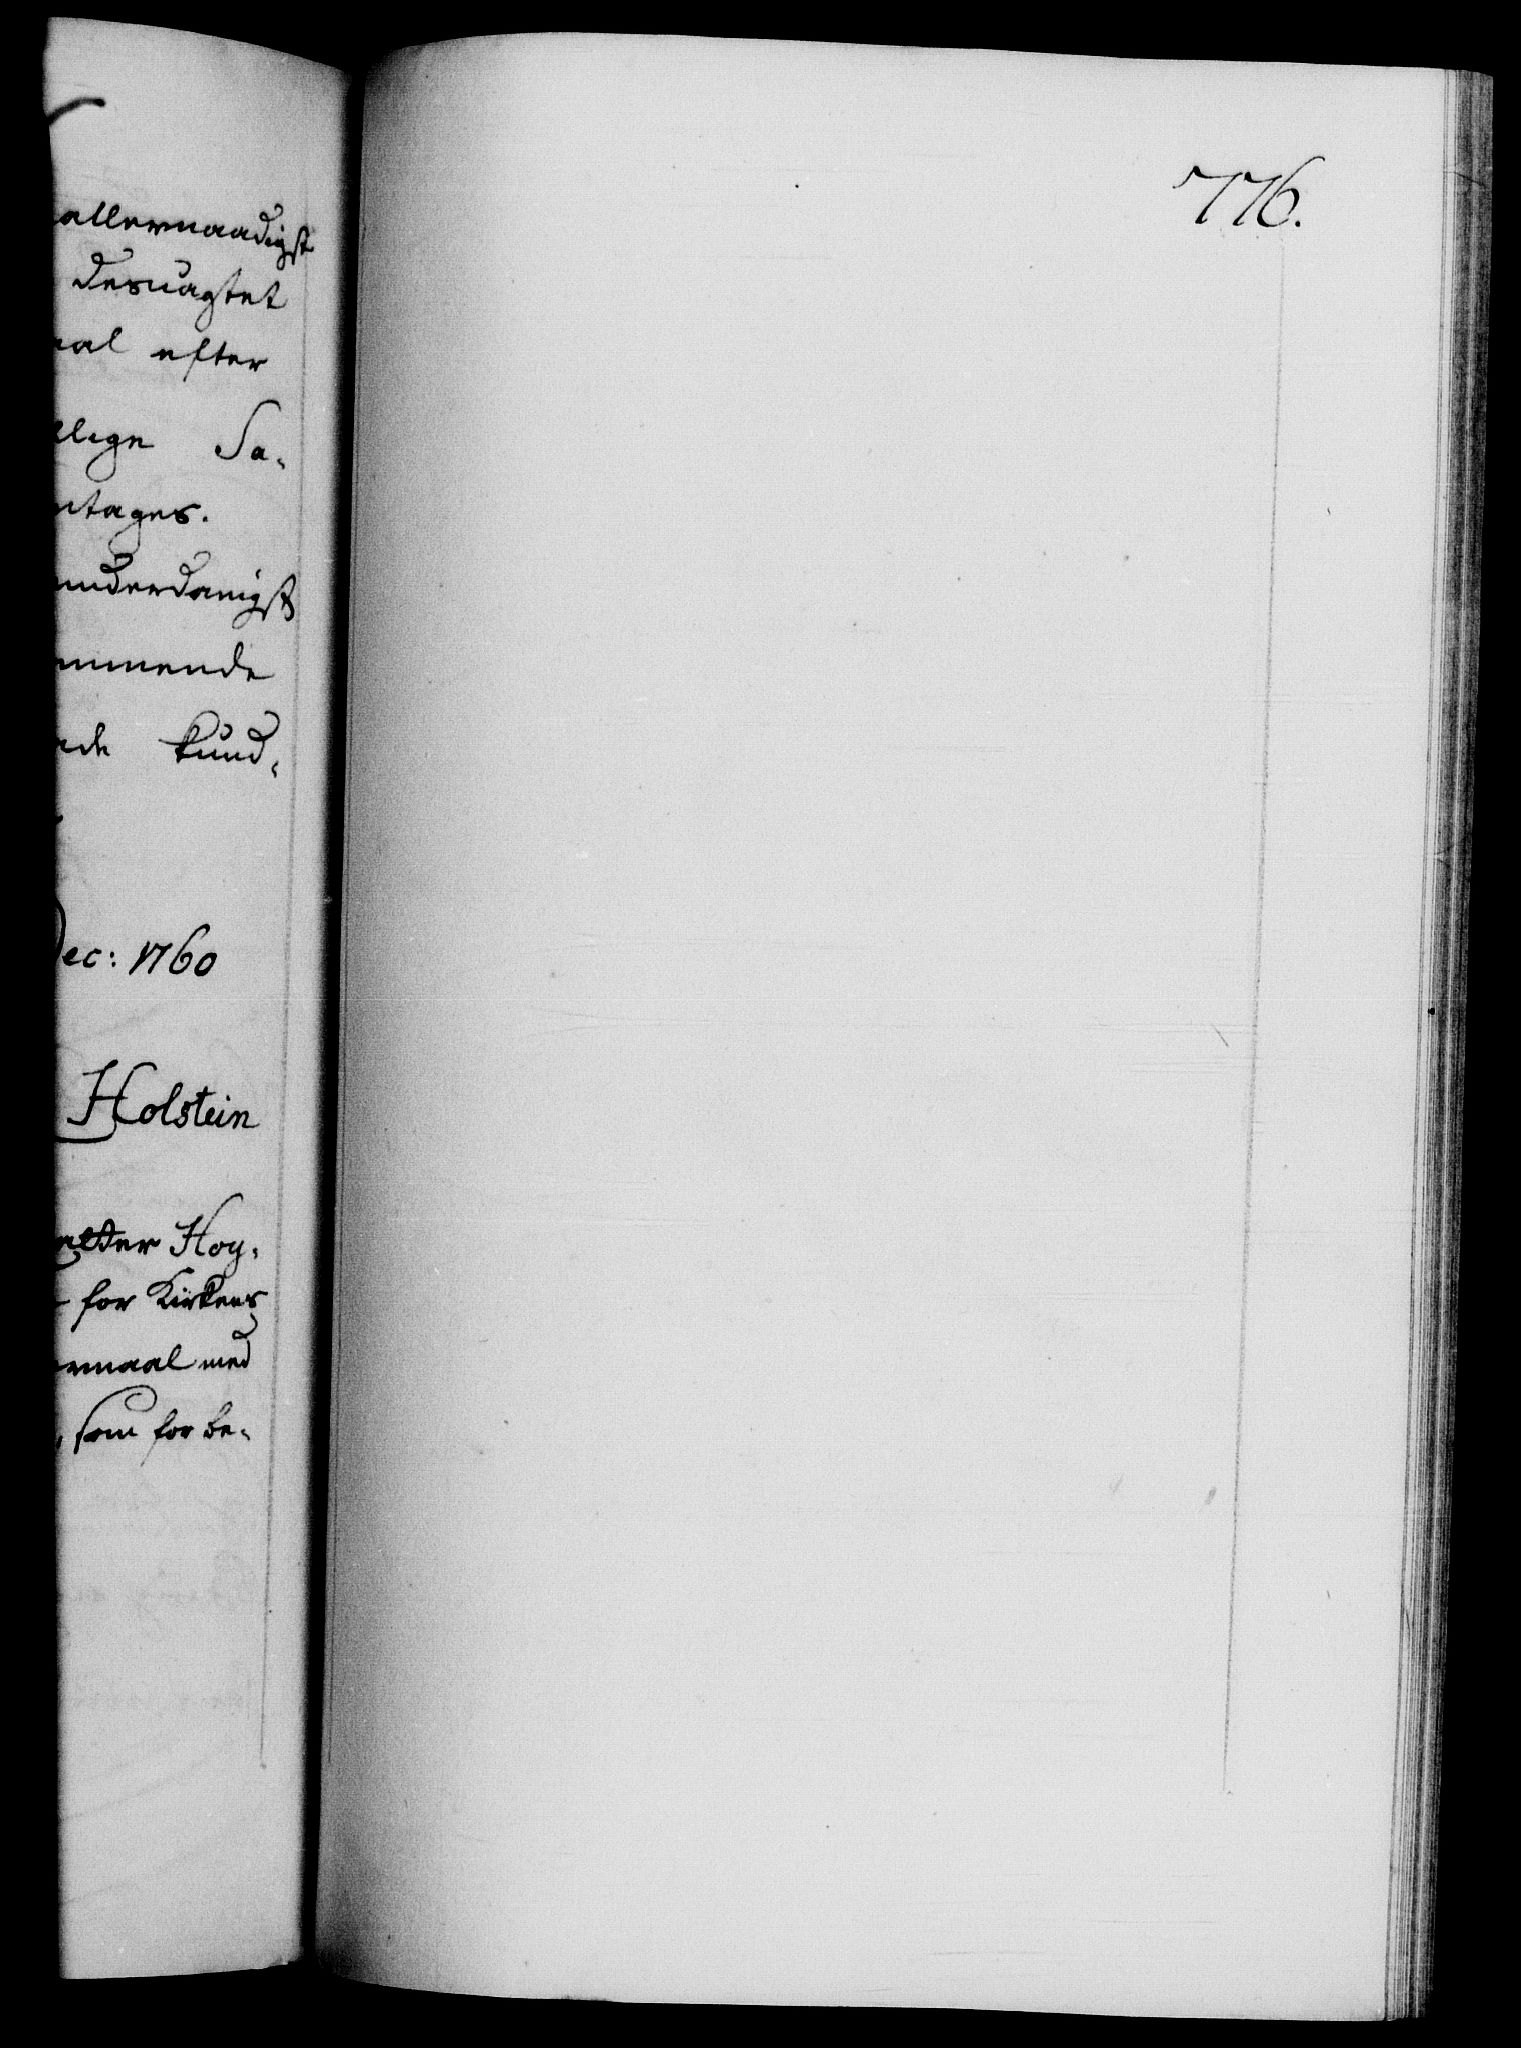 allernaadigst
desuagtet
aal efter
llige Sa-
ntages.
underdanigst
ommende
ade kund-
Dec: 1760
Holstein
alter Hoy-
for Kirkens
ermaal med
, som for be-
776.